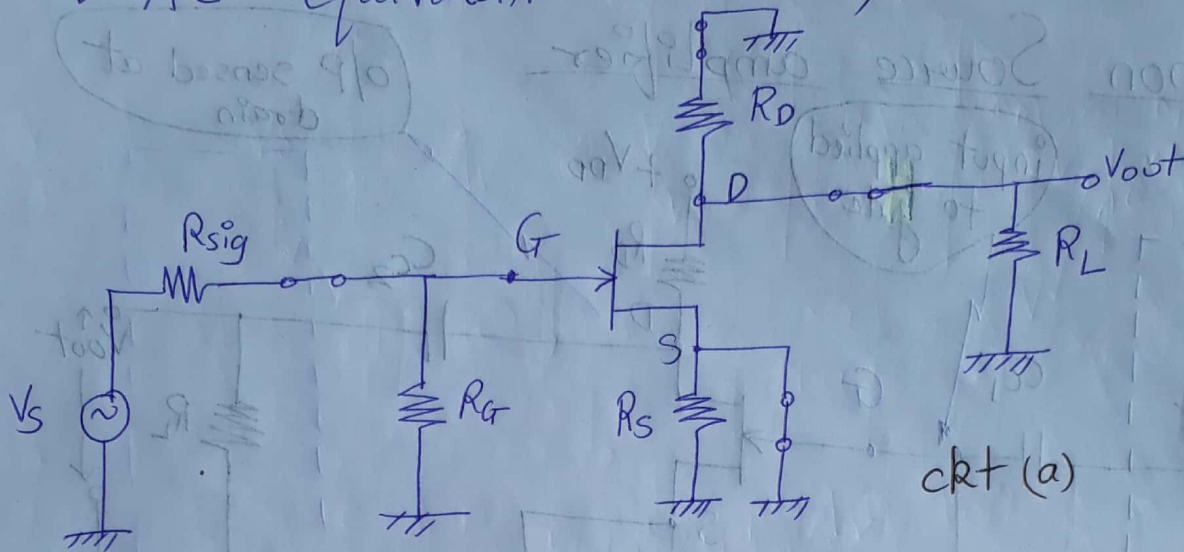 RD
D
Vout
Rsig
G
RL
S
Vs
RG
RS
ckt (a)